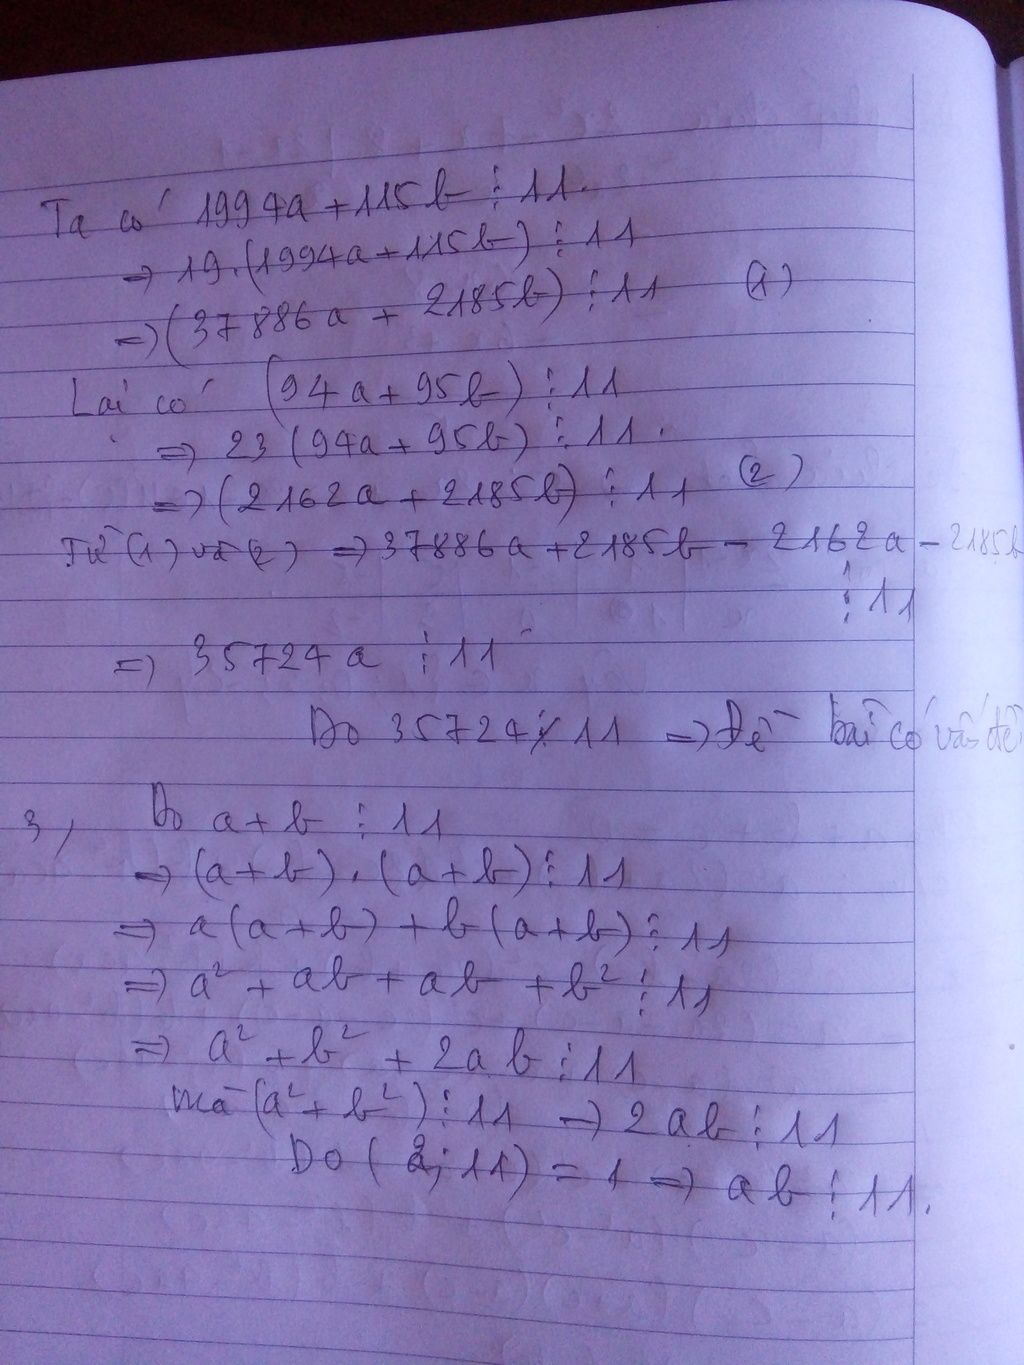 Ta có 1994a + 115b ⋮ 11.
⇒ 19.(1994a + 115b) ⋮ 11
⇒ (37886a + 2185b) ⋮ 11 (1)
Lại có (94a + 95b) ⋮ 11
⇒ 23 (94a + 95b) ⋮ 11.
⇒ (2162a + 2185b) ⋮ 11 (2)
Từ (1) và (2) ⇒ 37886a + 2185b - 2162a - 2185b
⋮ 11
⇒ 35724a ⋮ 11
Do 35724 ⋮̸ 11 ⇒ Đề bài có vấn đề
3, Do a + b ⋮ 11
⇒ (a + b) . (a + b) ⋮ 11
⇒ a(a + b) + b(a + b) ⋮ 11
⇒ a² + ab + ab + b² ⋮ 11
⇒ a² + b² + 2ab ⋮ 11
mà (a² + b²) ⋮ 11 ⇒ 2ab ⋮ 11
Do (2; 11) = 1 ⇒ ab ⋮ 11.